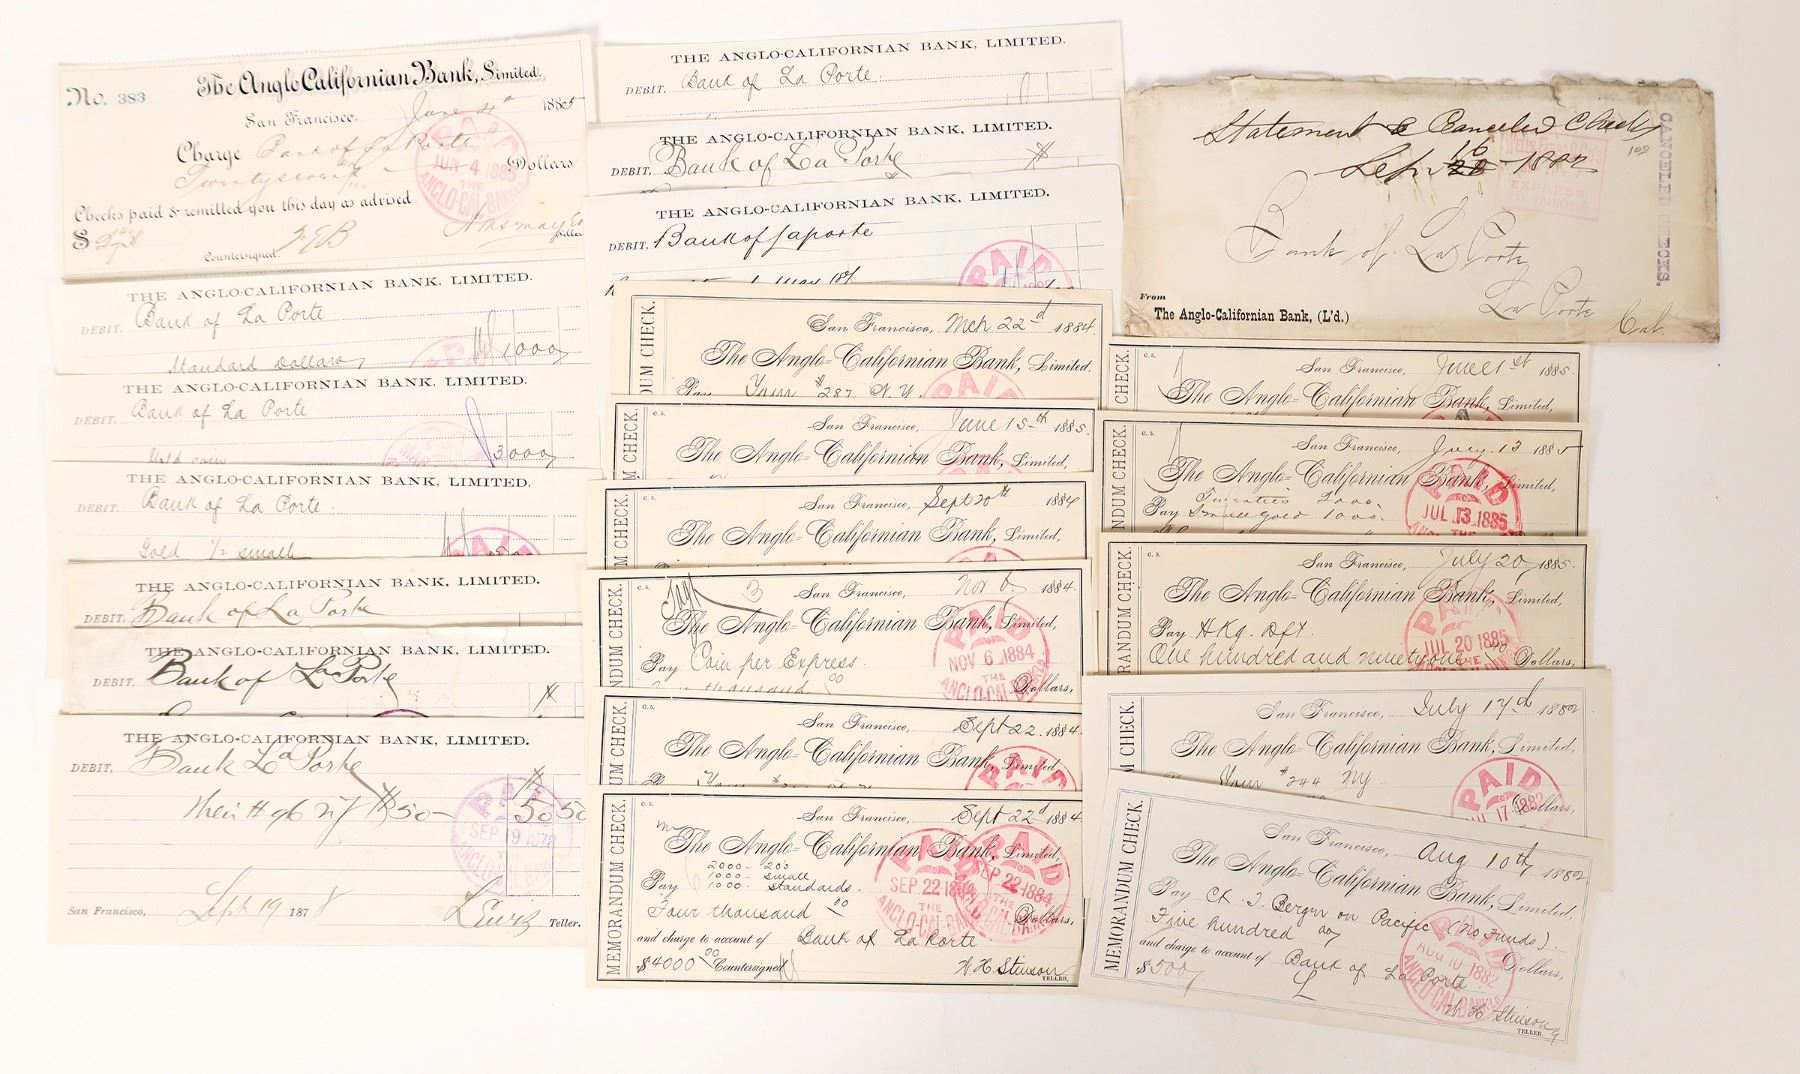 No. 383
The Anglo Californian Bank, Limited.
San Francisco, June 4th 1885
Charge Bank of La Porte
Twentyseven Dollars
PAID
JUN 4 1885
THE
ANGLO-CAL-BANK
Checks paid & remitted you this day as advised.
$
Countersigned.
Teller
THE ANGLO-CALIFORNIAN BANK, LIMITED.
DEBIT, Bank of La Porte
Standard Dollars 1000
THE ANGLO-CALIFORNIAN BANK, LIMITED.
DEBIT, Bank of La Porte
Gold coin 3000
THE ANGLO-CALIFORNIAN BANK, LIMITED.
DEBIT, Bank of La Porte
Gold 1/2 small
PAID
THE ANGLO-CALIFORNIAN BANK, LIMITED.
DEBIT, Bank of La Porte
THE ANGLO-CALIFORNIAN BANK, LIMITED.
DEBIT, Bank of La Porte
THE ANGLO-CALIFORNIAN BANK, LIMITED.
DEBIT, Bank La Porte
their # 96 NY $50-
50 50
PAID
SEP 19 1878
THE
San Francisco, Sept 19 1878
Lewis Teller.
THE ANGLO-CALIFORNIAN BANK, LIMITED.
DEBIT, Bank of La Porte
THE ANGLO-CALIFORNIAN BANK, LIMITED.
DEBIT, Bank of La Porte
THE ANGLO-CALIFORNIAN BANK, LIMITED.
DEBIT, Bank of Laporte
PAID
DUM CHECK.
San Francisco, Mch 22d 1884.
The Anglo-Californian Bank, Limited.
Pay Your # 287 N.Y.
PAID
UM CHECK.
C. S.
San Francisco, June 15th 1885.
The Anglo-Californian Bank, Limited,
UM CHECK.
C. S.
San Francisco, Sept 20th 1884
The Anglo-Californian Bank, Limited,
NDUM CHECK.
C. S.
3
San Francisco, Nov 6 1884.
The Anglo-Californian Bank, Limited,
Pay Coin per Express.
thousand 00 Dollars,
PAID
NOV 6 1884
THE
ANGLO-CAL-BANK
UM CHECK.
C. S.
San Francisco, Sept 22 1884.
The Anglo-Californian Bank, Limited,
PAID
MEMORANDUM CHECK.
C. S.
San Francisco, Sept 22d 1884
The Anglo-Californian Bank, Limited,
2000 - 20's
Pay 1000 - small
1000 - standards.
Four thousand 00 Dollars,
and charge to account of Bank of La Porte
$4000 00 Countersigned
W. H. Stinson
TELLER.
PAID
SEP 22 1884
THE
ANGLO-CAL-BANK
PAID
SEP 22 1884
THE
Statement & Canceled Checks
Sep 16 20 - 1882
100
CANCELED CHECKS.
Wells Fargo & Co's
EXPRESS
SAN FRANCISCO
Bank of La Porte
La Porte
Cal.
From
The Anglo-Californian Bank, (L'd.)
CHECK.
C. S.
San Francisco, June 1st 1885.
The Anglo-Californian Bank, Limited,
NDUM CHECK.
C. S.
San Francisco, July 13 1885
The Anglo-Californian Bank, Limited,
Pay Small gold 1000.
PAID
JUL 13 1885
THE
RANDUM CHECK.
C. S.
San Francisco, July 20 1885.
The Anglo-Californian Bank, Limited,
Pay H Kg. Dft.
One hundred and ninety one Dollars,
PAID
JUL 20 1885
THE
M CHECK.
San Francisco, July 17th 1882
The Anglo-Californian Bank, Limited,
Your # 244 NY.
Dollars,
PAID
JUL 17 1882
MEMORANDUM CHECK.
San Francisco, Aug 10th 1882
The Anglo-Californian Bank, Limited,
Pay Ck. J. Bergin on Pacific (No Funds).
Five hundred Dollars,
and charge to account of Bank of La Porte
$500
L
W H Stinson
TELLER.
PAID
AUG 10 1882
THE
ANGLO-CAL-BANK